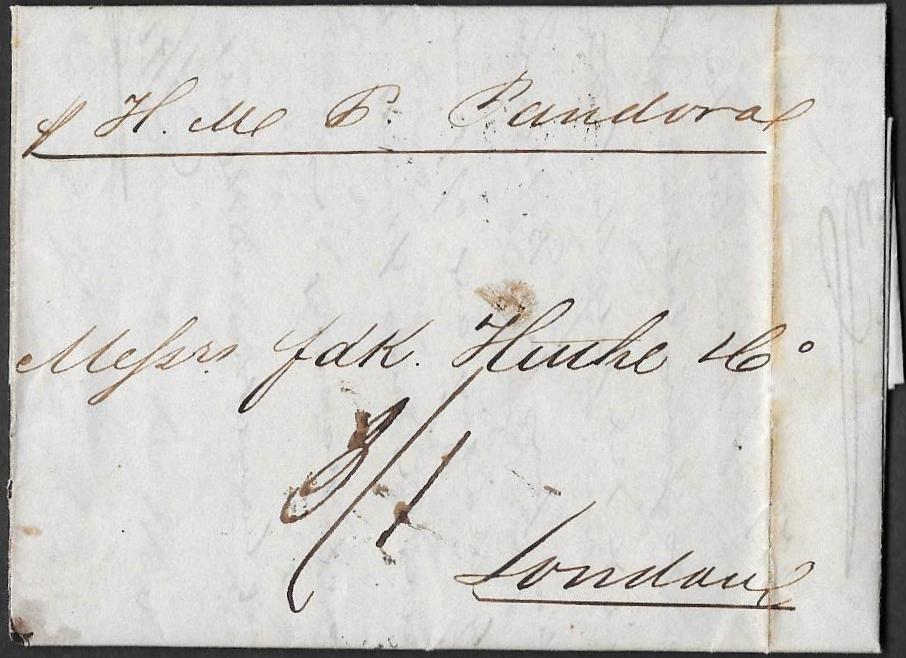 ℔ H. M. P. Pandora
Messrs. fdk. Huthe & Co
London